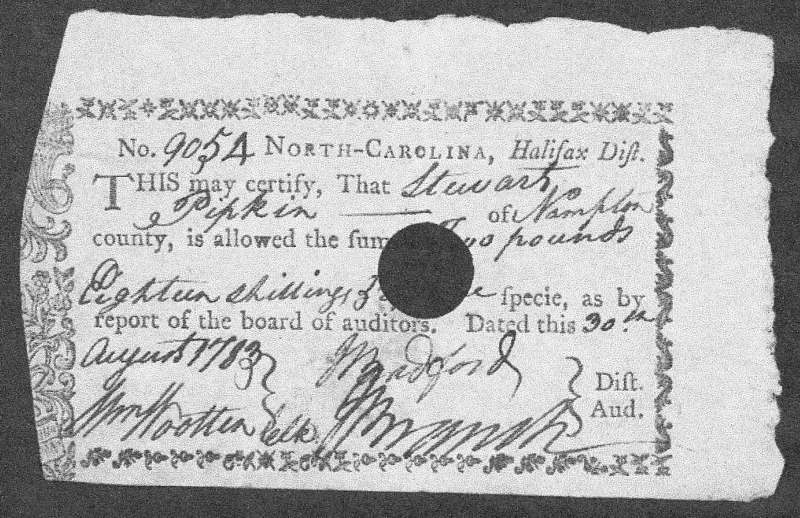 No. 9054 NORTH-CAROLINA, Halifax Diſt.
THIS may certify, That Stewart
Pipkin —— of Nampton
county, is allowed the ſum Two pounds
Eighteen shillings & specie, as by
report of the board of auditors. Dated this 30.th
August 1783 JBradford Diſt.
Wm Wootten Clk. JBranch Aud.